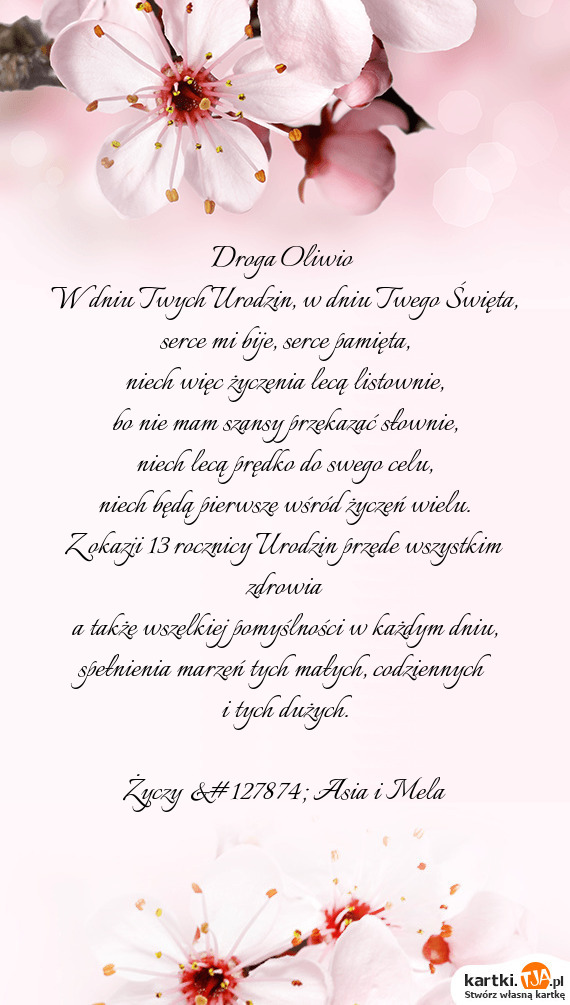 Droga Oliwio
W dniu Twych Urodzin, w dniu Twego Święta,
serce mi bije, serce pamięta,
niech więc życzenia lecą listownie,
bo nie mam szansy przekazać słownie,
niech lecą prędko do swego celu,
niech będą pierwsze wśród życzeń wielu.
Z okazji 13 rocznicy Urodzin przede wszystkim
zdrowia
a także wszelkiej pomyślności w każdym dniu,
spełnienia marzeń tych małych, codziennych
i tych dużych.
Życzy &#127874; Asia i Mela
kartki.TJA.pl
Stwórz własną kartkę